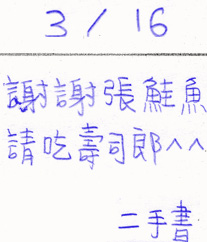 3/16
謝謝張鮭魚
請吃壽司郎^^
二手書